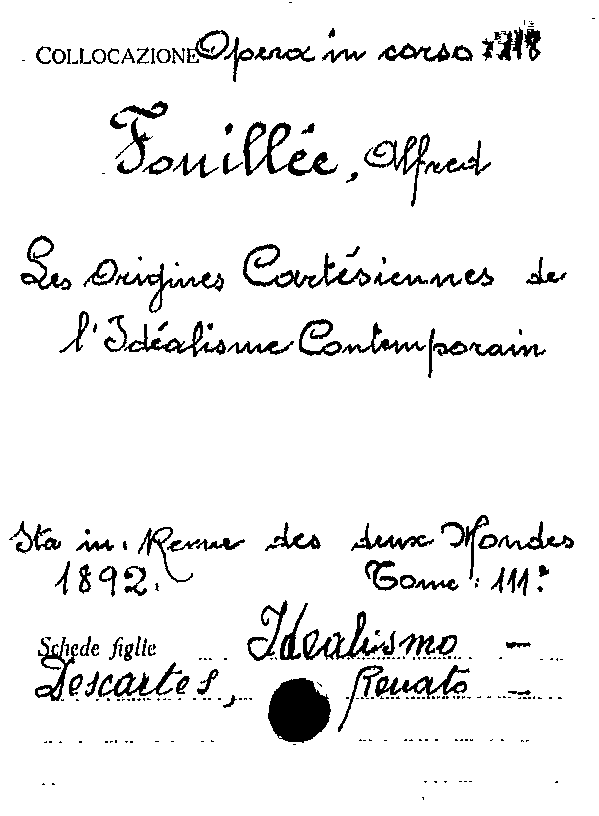 COLLOCAZIONE Opera in corso
Fouillée, Alfred
Les Origines Cartésiennes de
l'Idéalisme Contemporain
Sta in: Revue des deux Mondes
1892. Tome: 111°
Schede figlie Idealismo –
Descartes, Renato –